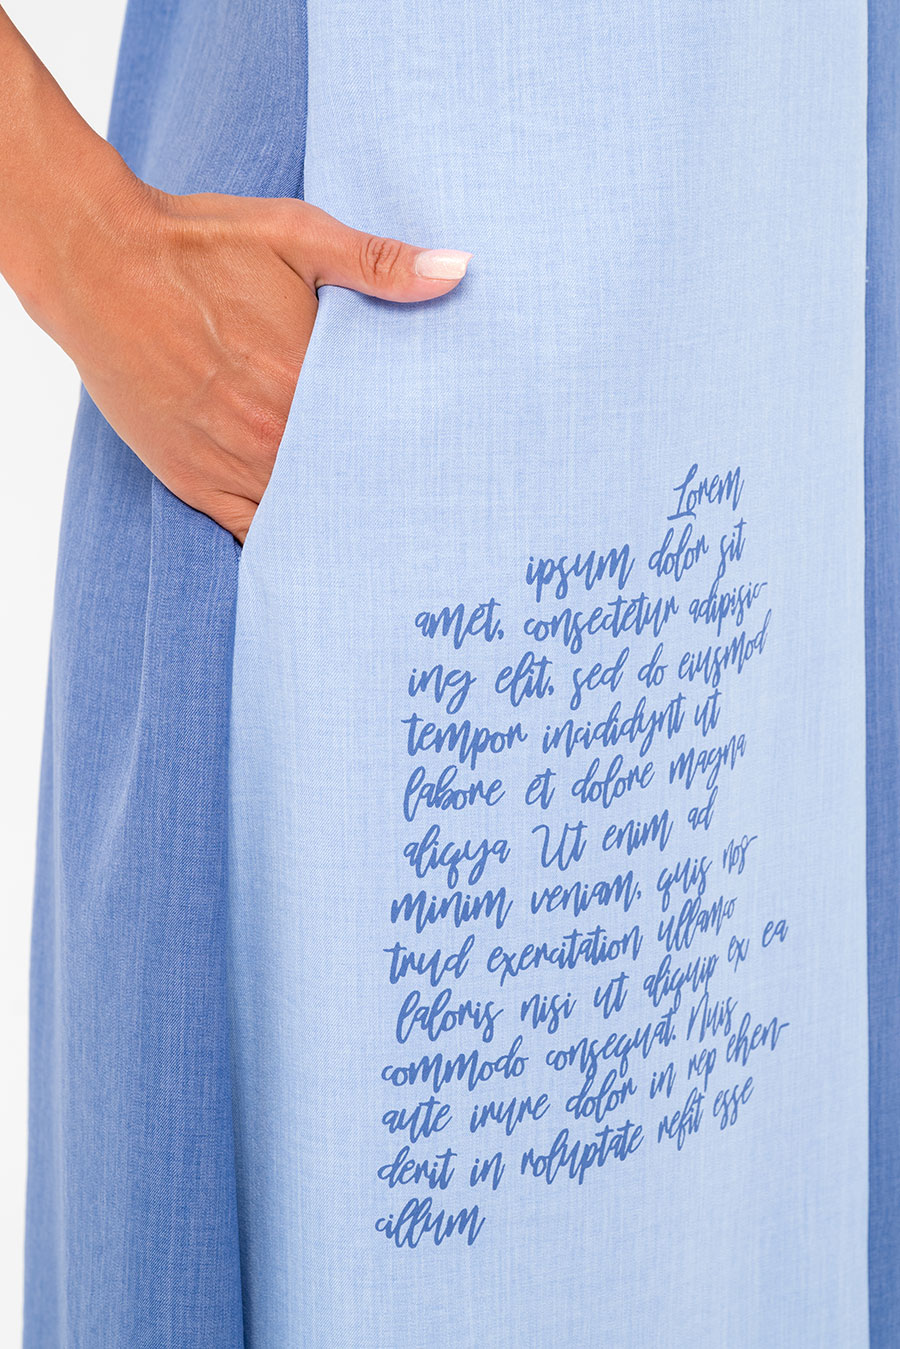 Lorem
ipsum dolor sit
amet, consectetur adipisic-
ing elit, sed do eiusmod
tempor incididynt ut
labore et dolore magna
aliqya Ut enim ad
minim veniam, quis nos-
trud exercitation ullamco
laloris nisi ut aliquip ex ea
commodo consequat. Nuis
aute irure dolor in rep ehen-
derit in roluptate refit esse
cillum